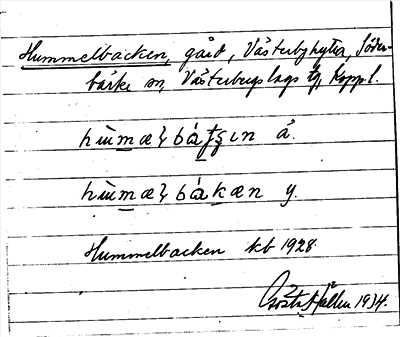 Hummelbacken, gård, Västerbyhytta, Söder-
bärke sn, Västerbergslags tg, Koppl.
hùmæl bátʂɩn ä.
hùmæl bákæn y.
Hummelbacken kb 1928.
Gösta 1934.